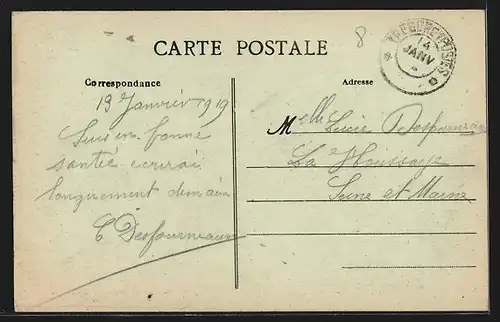 CARTE POSTALE
8
14
JANV
Correspondance
Adresse
13 Janvier 1919
Suis en bonne
santé écrirai
longuement demain
E Desfourneaux
Melle Lucie
La Houssaye
Seine et Marne